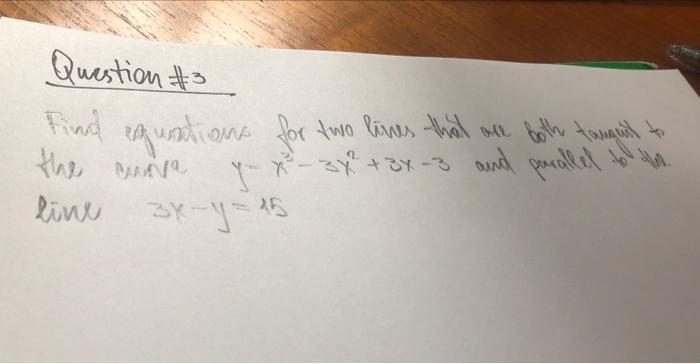 Question #3
Find equations for two lines that are both tangent to
the curve y = x³ - 3x² + 3x - 3 and parallel to the
line 3x - y = 15